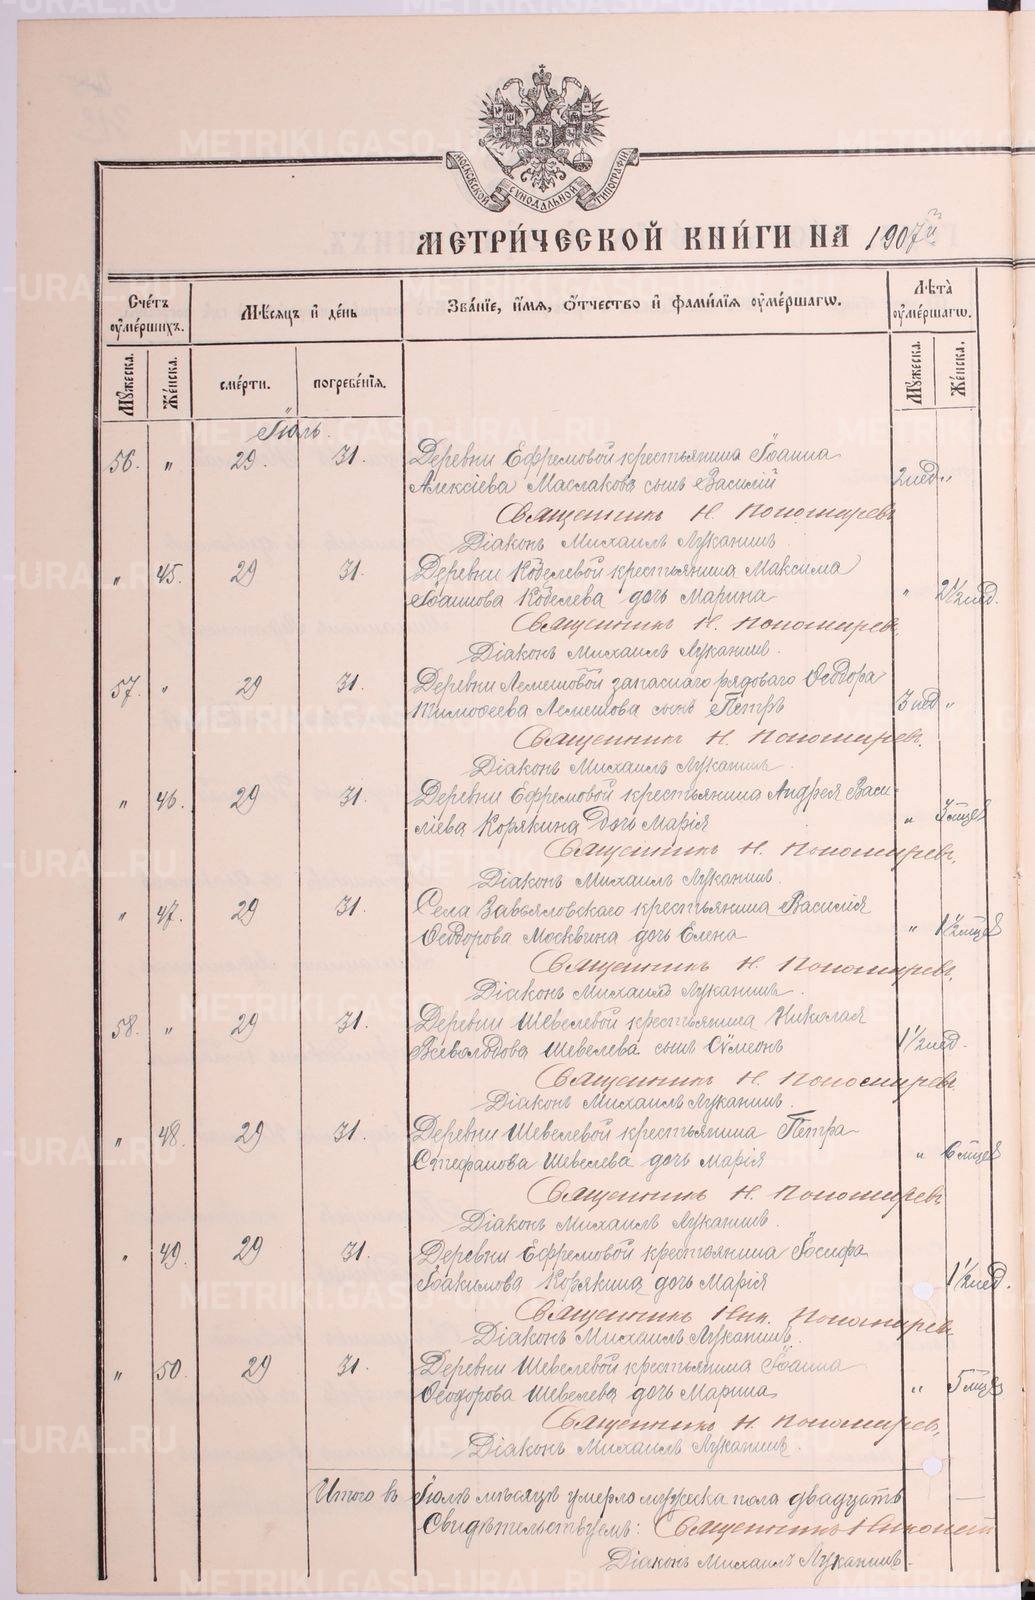 МОСКОВСКОЙ СѴНОДАЛЬНОЙ ТИПОГРАФІИ
МЕТРИЧЕСКОЙ КНИГИ НА 1907й
Счетъ умершихъ. Мѣсяцъ и день Званіе, имя, отчество и фамилія умершагѡ. Лѣта умершагѡ.
Мужеска. Женска. смерти. погребенія. Мужеска. Женска.
Іюль.
56. " 29. 31. Деревни Ефремовой крестьянина Іоанна
Алексіева Маслакова сынъ Василій 2 нед. "
Священникъ Н. Пономаревъ
Діаконъ Михаилъ Луканинъ.
" 45. 29 31. Деревни Кобелевой крестьянина Максима
Іоаннова Кобелева дочь Марина " 2 1/2 нед.
Священникъ Н. Пономаревъ.
Діаконъ Михаилъ Луканинъ.
57. " 29 31. Деревни Лемешовой запаснаго рядоваго Ѳеодора
Тимоѳеева Лемешова сынъ Петръ 3 нед "
Священникъ Н. Пономаревъ.
Діаконъ Михаилъ Луканинъ.
" 46. 29 31. Деревни Ефремовой крестьянина Андрея Васи-
ліева Корякина дочь Марія " мцев
Священникъ Н. Пономаревъ.
Діаконъ Михаилъ Луканинъ.
" 47. 29 31. Села Завьяловскаго крестьянина Василія
Ѳеодорова Москвина дочь Елена " 1 1/2 мцев
Священникъ Н. Пономаревъ.
Діаконъ Михаилъ Луканинъ.
58. " 29 31. Деревни Шевелевой крестьянина Николая
Всеволодова Шевелева сынъ Сѵмеонъ 1 1/2 нед.
Священникъ Н. Пономаревъ
Діаконъ Михаилъ Луканинъ.
" 48. 29 31. Деревни Шевелевой крестьянина Петра
Стефанова Шевелева дочь Марія " 6 мцев
Священникъ Н. Пономаревъ
Діаконъ Михаилъ Луканинъ.
" 49. 29 31. Деревни Ефремовой крестьянина Іосифа
Іоакимова Корякина дочь Марія 1 1/2 нед.
Священникъ Ник. Пономаревъ
Діаконъ Михаилъ Луканинъ.
" 50. 29 31. Деревни Шевелевой крестьянина Іоанна
Ѳеодорова Шевелева дочь Марина " 5 мцев
Священникъ Н. Пономаревъ.
Діаконъ Михаилъ Луканинъ.
Итого въ Іюлѣ мѣсяцѣ умерло мужеска пола двадцать
Свидѣтельствуемъ: Священникъ
Діаконъ Михаилъ Луканинъ